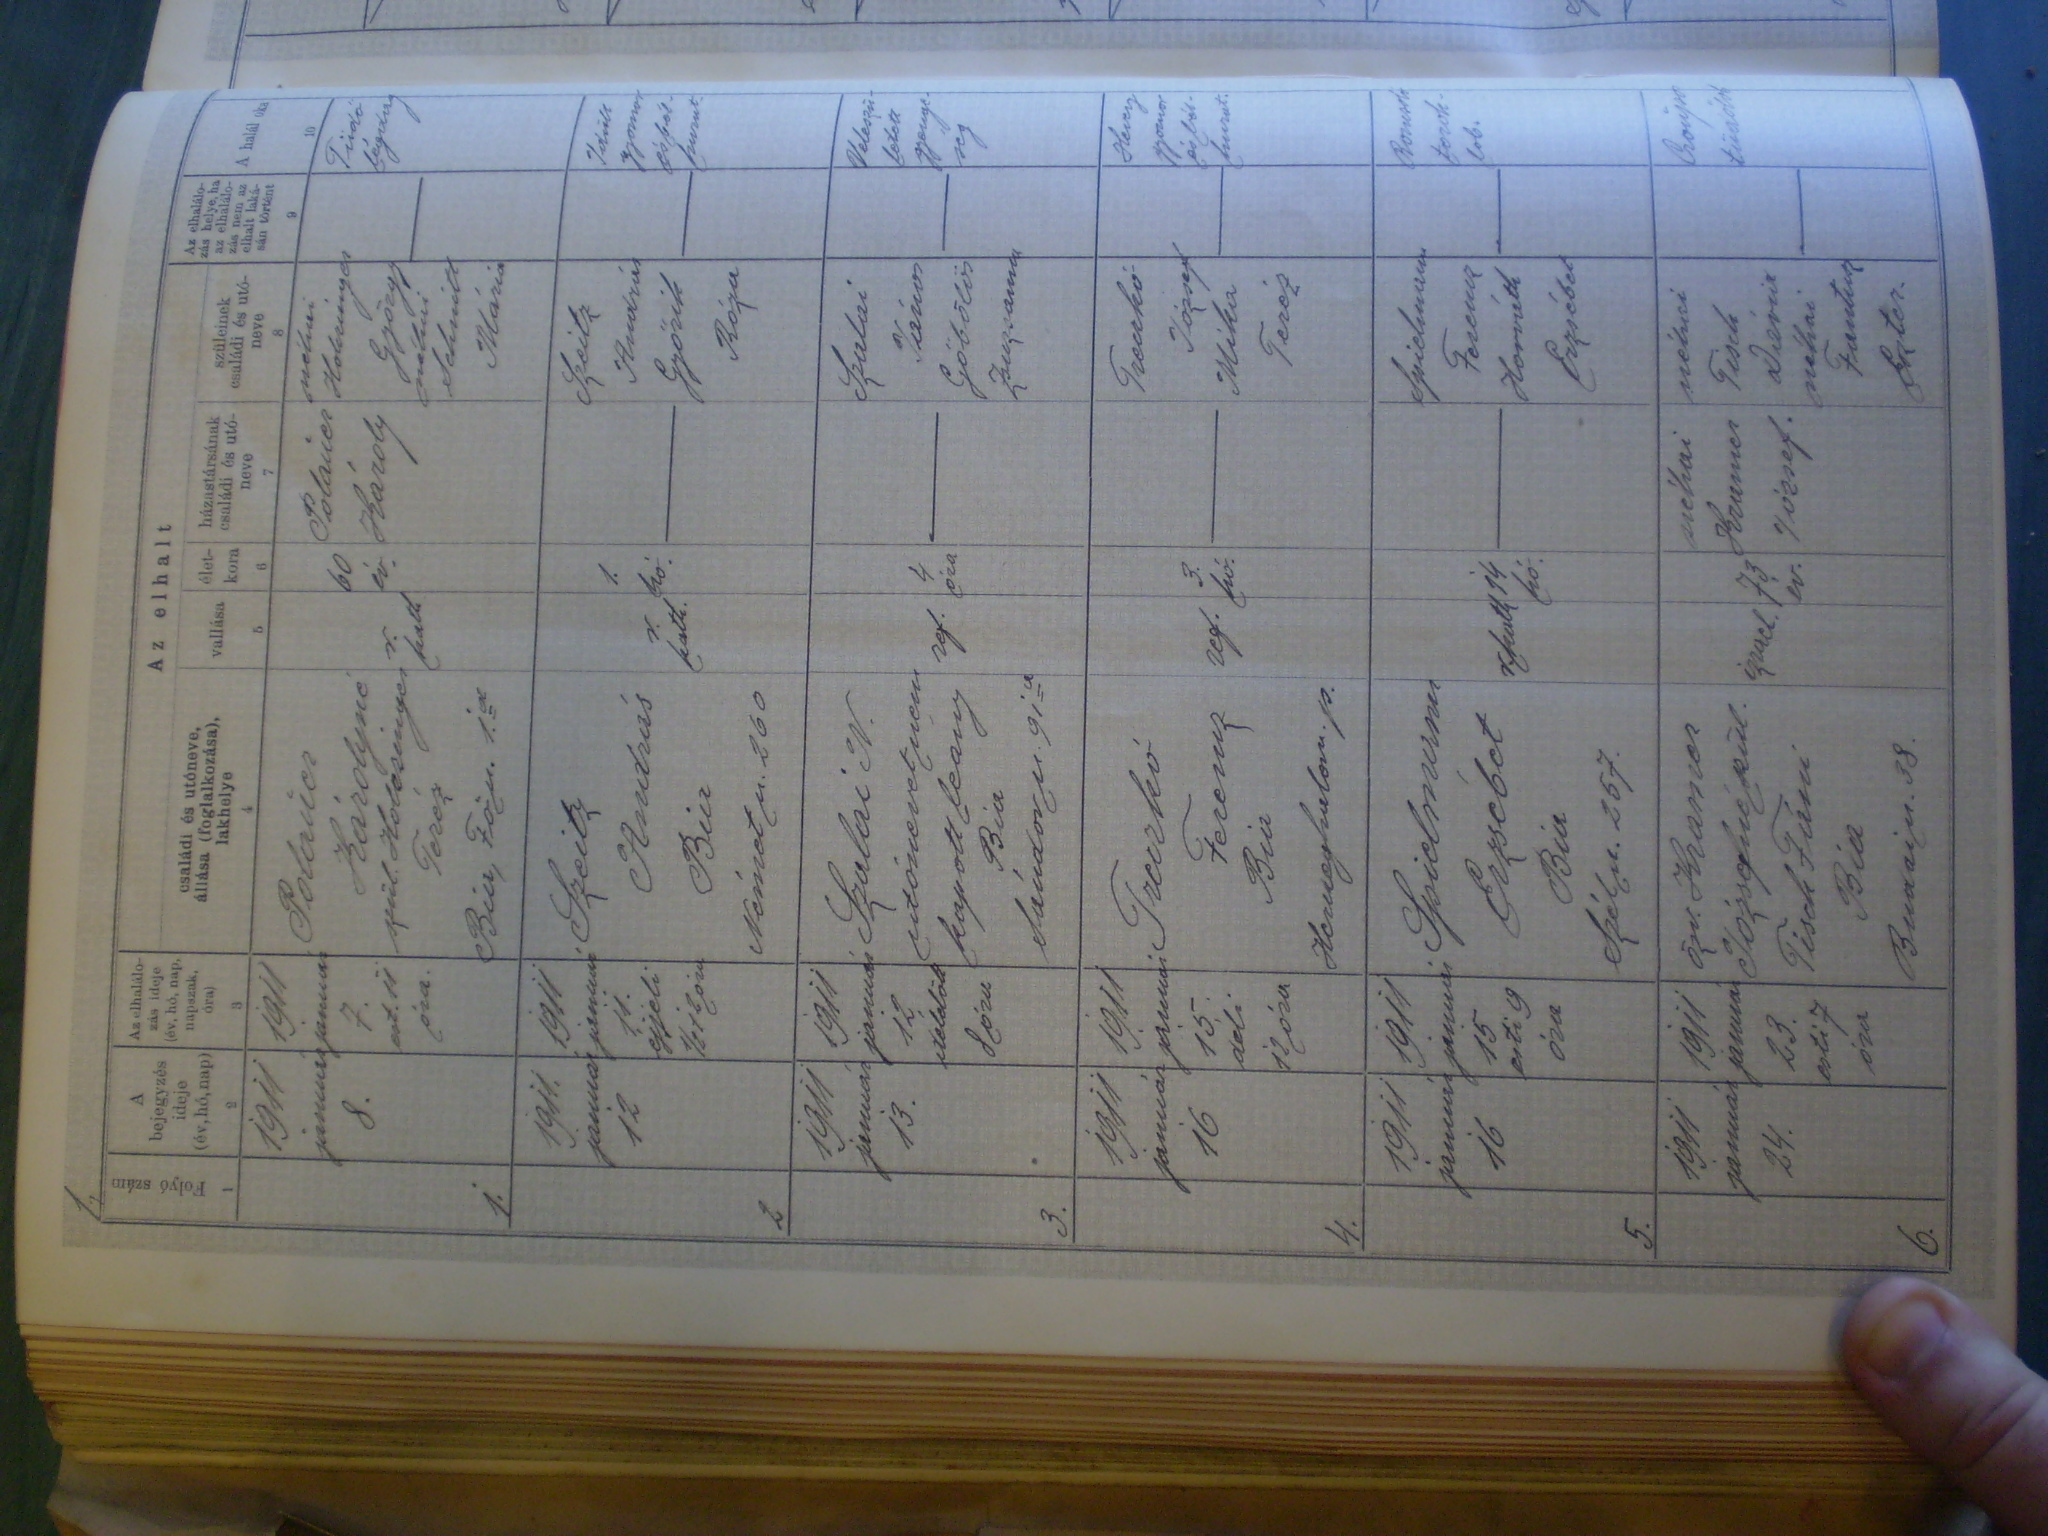 1.
Az elhalt
Folyó szám
A
bejegyzés
ideje
(év, hó, nap)
Az elhalálo-
zás ideje
(év, hó, nap,
napszak,
óra)
családi és utóneve,
állása (foglalkozása),
lakhelye
vallása
élet-
kora
házastársának
családi és utó-
neve
szüleinek
családi és utó-
neve
Az elhalálo-
zás helye, ha
az elhalálo-
zás nem az
elhalt laká-
sán történt
A halál oka
1
2
3
4
5
6
7
8
9
10
1.
1911
január
8.
1911
január
7.
est. 11
óra.
Polauer
Károlyné
szül. Holczinger
Teréz
Bia, Fő u. 1.
r.
kath
60
év.
Polauer
Károly
néhai
Holczinger
György
néhai
Schmidt
Mária
Tüdő
légdag
2
1911.
január
12
1911
január
11.
éjjeli
óra
Szeitz
András
Bia
Német u. 260
r.
kath.
1.
hó.
Szeitz
András
Győrik
Róza
gyomor
bélhurut.
3.
1911
január
13.
1911
január
12
délelőtt
8 óra
Szalai N.
utónevet nem
kapott leány
Bia
Nándor u. 91
ref.
4
óra
Szalai
János
Göbölös
Zsuzsanna
Veleszü-
letett
gyenge-
ség
4.
1911
január
16
1911
január
15.
déli
12 óra
Ferencz
Bia
ref.
3.
hó.
József
Mika
Teréz
Heveny
gyomor
bélhurut.
5.
1911
január
16
1911
január
15
esti 9
óra
Spielmann
Erzsébet
Bia
Szél u. 257.
r. kath
14
hó.
Spielmann
Ferencz
Horváth
Erzsébet
torok-
lob.
6.
1911
január
24.
1911
január
23.
esti 7
óra
özv. Kramer
Józsefné szül.
Tisch Fáni
Bia
Budai u. 38.
izrael.
73
év.
néhai
Kramer
József.
néhai
Tisch
néhai
Eszter.